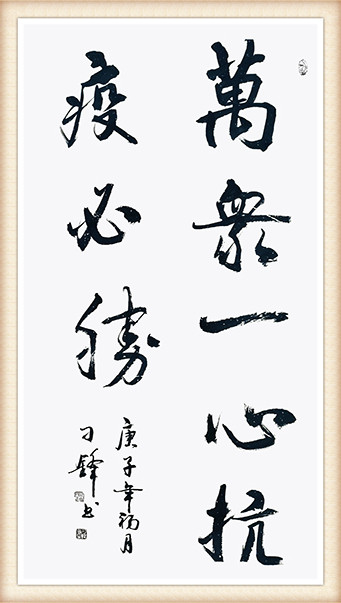 萬眾一心抗
疫必勝
庚子年初月
刁鋒书